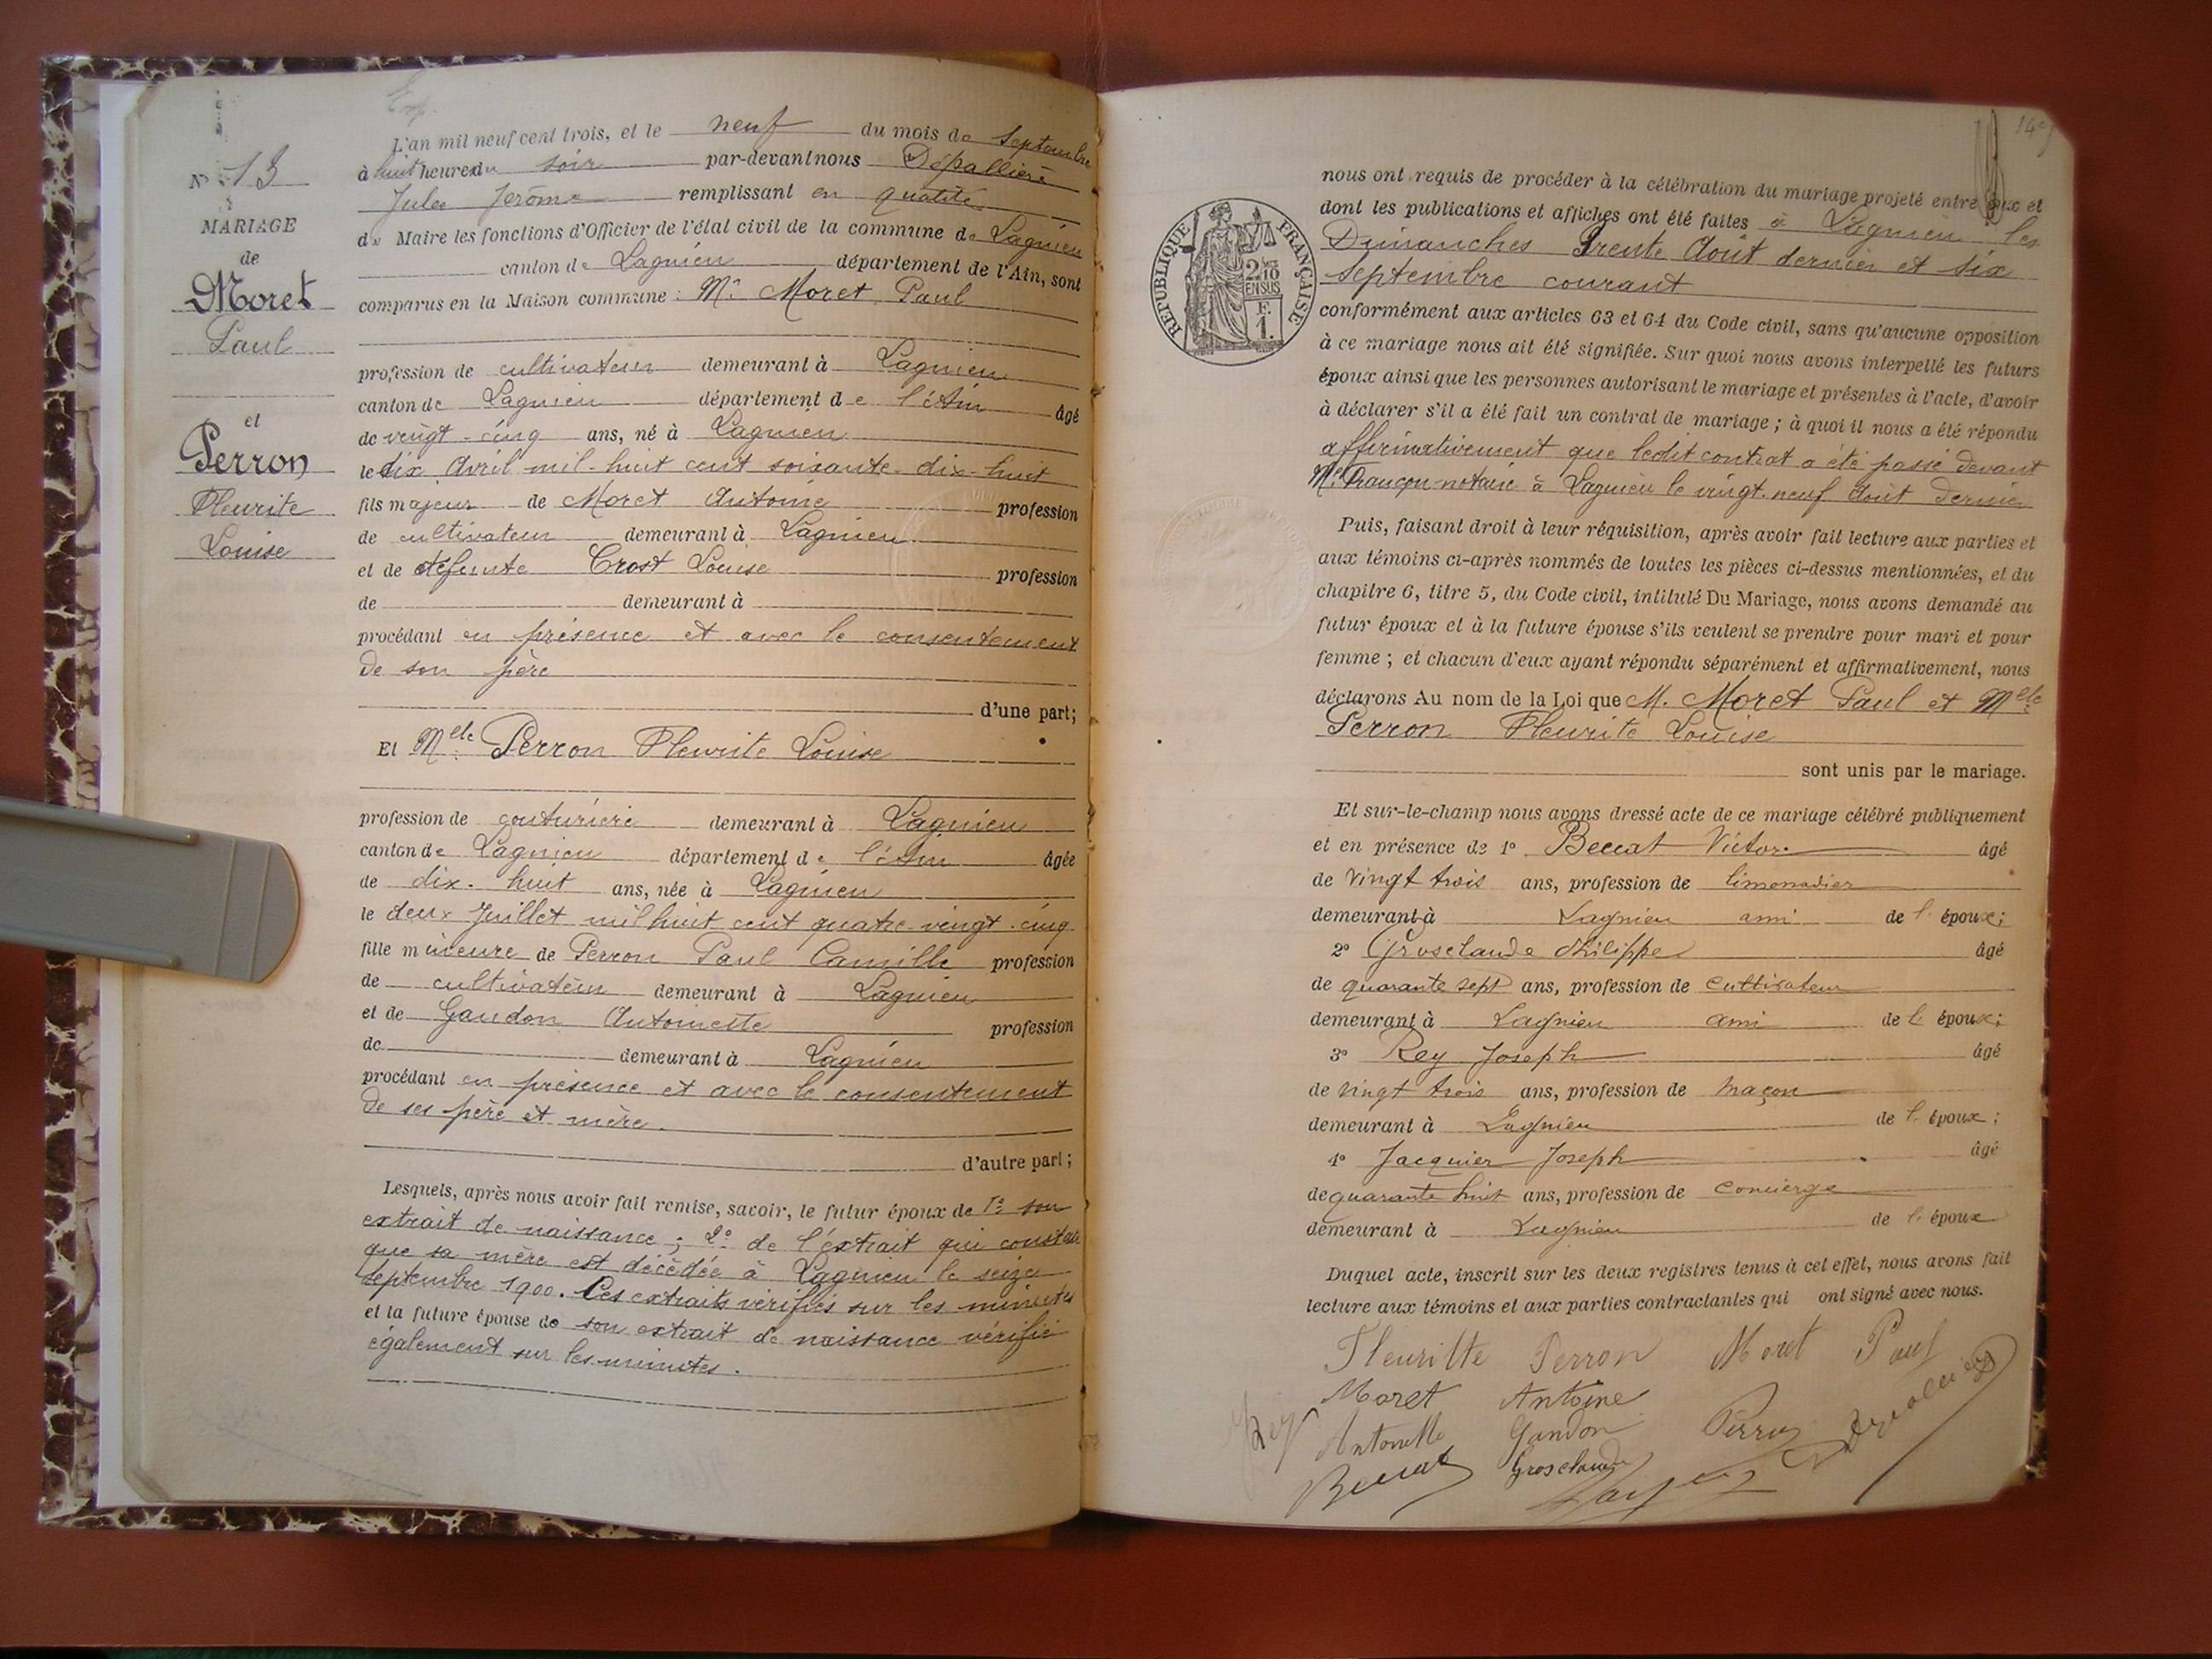 N° 13
MARIAGE
de
Moret
Paul
et
Perron
Fleurite
Louise
L'an mil neuf cent trois, et le neuf du mois de Septembre
à huit heures du soir par-devant nous Dépallière
Jules Jerôme remplissant en qualité
de Maire les fonctions d'Officier de l'état civil de la commune de Lagnieu
canton de Lagnieu département de l'Ain, sont
comparus en la Maison commune : Mr Moret Paul
profession de cultivateur demeurant à Lagnieu
canton de Lagnieu département de l'Ain âgé
de vingt-cinq ans, né à Lagnieu
le dix Avril mil-huit cent soixante-dix-huit
fils majeur de Moret Antoine profession
de cultivateur demeurant à Lagnieu
et de défunte Crost Louise profession
de demeurant à
procédant en présence et avec le consentement
de son père
d'une part;
Et Melle Perron Fleurite Louise
profession de couturière demeurant à Lagnieu
canton de Lagnieu département de l'Ain âgée
de dix-huit ans, née à Lagnieu
le deux Juillet mil huit cent quatre-vingt-cinq
fille mineure de Perron Paul Camille profession
de cultivateur demeurant à Lagnieu
et de Gandon Antoinette profession
de demeurant à Lagnieu
procédant en présence et avec le consentement
de ses père et mère.
d'autre part;
Lesquels, après nous avoir fait remise, savoir, le futur époux de 1° son
extrait de naissance; 2° de l'extrait qui constate
que sa mère est décédée à Lagnieu le seize
septembre 1900. Ces extraits vérifiés sur les minutes
et la future épouse de son extrait de naissance vérifié
également sur les minutes.
nous ont requis de procéder à la célébration du mariage projeté entre eux et
dont les publications et affiches ont été faites à Lagnieu les
Dimanches Trente Août dernier et six
Septembre courant
RÉPUBLIQUE FRANÇAISE
2/10
EN SUS
F.
1.
conformément aux articles 63 et 64 du Code civil, sans qu'aucune opposition
à ce mariage nous ait été signifiée. Sur quoi nous avons interpellé les futurs
époux ainsi que les personnes autorisant le mariage et présentes à l'acte, d'avoir
à déclarer s'il a été fait un contrat de mariage; à quoi il nous a été répondu
affirmativement que ledit contrat a été passé devant
Me Françon notaire à Lagnieu le vingt-neuf Août dernier
Puis, faisant droit à leur réquisition, après avoir fait lecture aux parties et
aux témoins ci-après nommés de toutes les pièces ci-dessus mentionnées, et du
chapitre 6, titre 5, du Code civil, intitulé Du Mariage, nous avons demandé au
futur époux et à la future épouse s'ils veulent se prendre pour mari et pour
femme; et chacun d'eux ayant répondu séparément et affirmativement, nous
déclarons Au nom de la Loi que M. Moret Paul et Melle
Perron Fleurite Louise
sont unis par le mariage.
Et sur-le-champ nous avons dressé acte de ce mariage célébré publiquement
et en présence de 1° Beccat Victor âgé
de vingt trois ans, profession de limonadier
demeurant à Lagnieu ami de l' époux;
2° Grosclaude Philippe âgé
de quarante sept ans, profession de cultivateur
demeurant à Lagnieu ami de l' époux;
3° Rey Joseph âgé
de vingt trois ans, profession de maçon
demeurant à Lagnieu de l' époux;
4° Jacquier Joseph âgé
de quarante huit ans, profession de concierge
demeurant à Lagnieu de l' époux
Duquel acte, inscrit sur les deux registres tenus à cet effet, nous avons fait
lecture aux témoins et aux parties contractantes qui ont signé avec nous.
Fleuritte Perron Moret Paul
Moret Antoine
Rey Antoinette Gandon Perron
Beccat Grosclaude